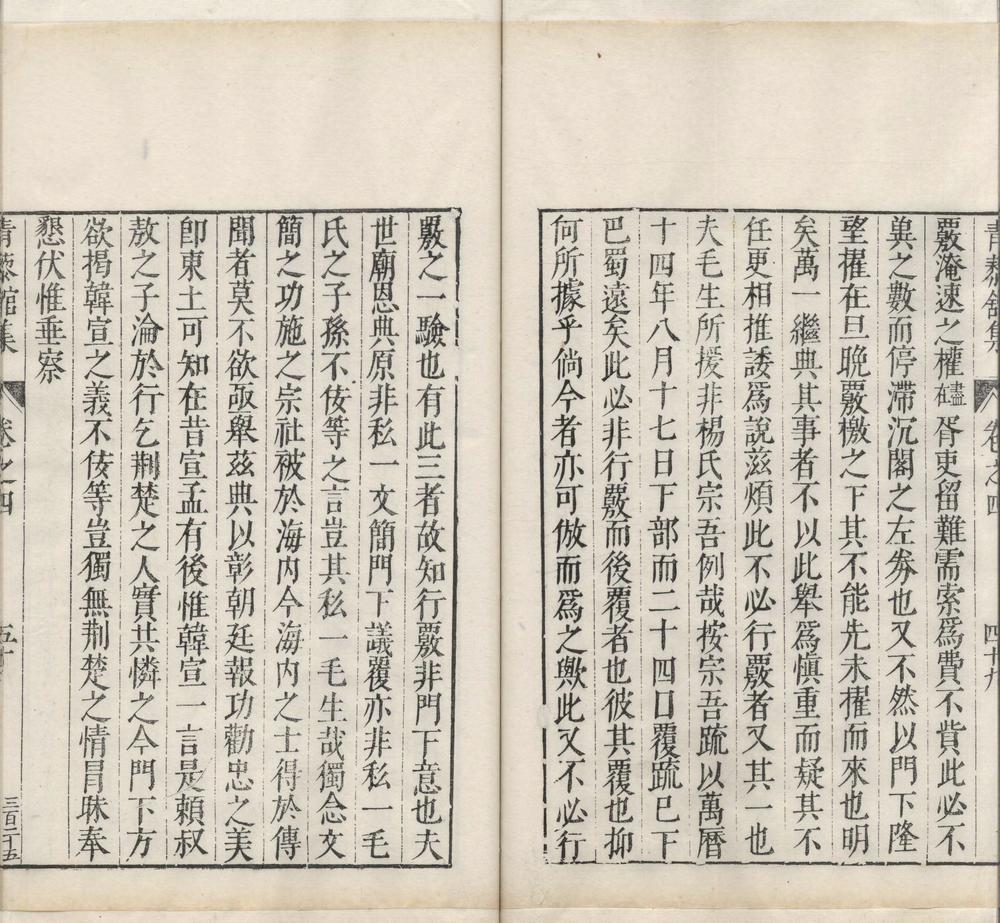 青藜館集 卷之四 四十九
覈淹速之權盡在胥吏留難需索爲費不貲此必不
冀之數而停滯沉閣之左券也又不然以門下隆
望擢在旦晚覈檄之下其不能先未擢而來也明
矣萬一繼典其事者不以此舉爲愼重而疑其不
任更相推諉爲說茲煩此不必行覈者又其一也
夫毛生所援非楊氏宗吾例哉按宗吾疏以萬曆
十四年八月十七日下部而二十四日覆疏已下
巴蜀遠矣此必非行覈而後覆者也彼其覆也抑
何所據乎倘今者亦可倣而爲之歟此又不必行
覈之一驗也有此三者故知行覈非門下意也夫
世廟恩典原非私一文簡門下議覆亦非私一毛
氏之子孫不佞等之言豈其私一毛生哉獨念文
簡之功施之宗祉被於海內今海內之士得於傳
聞者莫不欲亟舉茲典以彰朝廷報功勸忠之美
卽東土可知在昔宣孟有後惟韓宣一言是賴叔
敖之子淪於行乞荆楚之人實共憐之今門下方
欲揭韓宣之義不佞等豈獨無荆楚之情冒昧奉
懇伏惟垂察
青藜館集 卷之四 五十 三百二十五